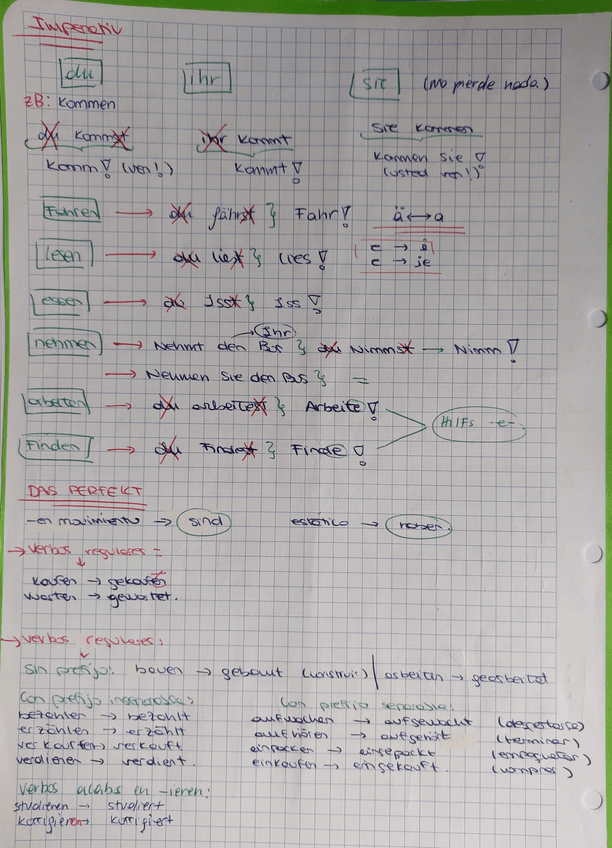 Imperativ
du ihr Sie (no pierde nada.)
zB: kommen
du kommst ihr kommt Sie kommen
Komm! (ven!) Kommt! Kommen Sie!
(usted ven!)
Fahren → du fährst } Fahr! ä ↔ a
Lesen → du liest } Lies! e → i
e → ie
essen → du isst } Iss!
ihr
nehmen → Nehmt den Bus } du Nimmst → Nimm!
→ Nehmen Sie den Bus } =
arbeiten → du arbeitest } Arbeite!
Hilfs -e-
Finden → du Findest } Finde!
DAS PERFEKT
-en movimiento → sind estático → haben.
→ Verbos regulares =
kaufen → gekauft
warten → gewartet.
→ Verbos regulares:
Sin prefijo: bauen → gebaut (construir) | arbeiten → gearbeitet
Con prefijo inseparable: Con prefijo separable:
bezahlen → bezahlt aufwachen → aufgewacht (despertarse)
erzählen → erzählt aufhören → aufgehört (terminar)
verkaufen → verkauft einpacken → eingepackt (empaquetar)
verdienen → verdient. einkaufen → eingekauft. (compras)
Verbos acabados en -ieren:
studieren → studiert
korrigieren → korrigiert